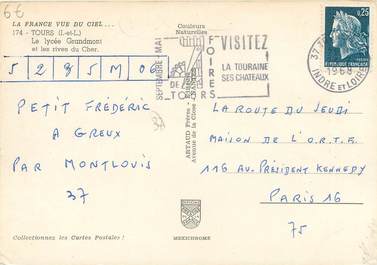 6€
LA FRANCE VUE DU CIEL...
174 - TOURS (I.-et-L.)
Le lycée Grandmont
et les rives du Cher.
5 2 8 5 M 06
PETIT FRÉDÉRIC
A GREUX
PAR MONTLOUIS
37
Collectionnez les Cartes Postales !
Couleurs
Naturelles
SEPTEMBRE MAI
FOIRES
DE
TOURS
VISITEZ
LA TOURAINE
SES CHATEAUX
ARTAUD Frères
Avenue de la Close
MEXICHROME
37
1968
INDRE ET LOIRE
0,25
REPUBLIQUE FRANÇAISE
LA ROUTE DU JEUDI
MAISON DE L'O.R.T.F.
116 AV. PRÉSIDENT KENNEDY
PARIS 16
75